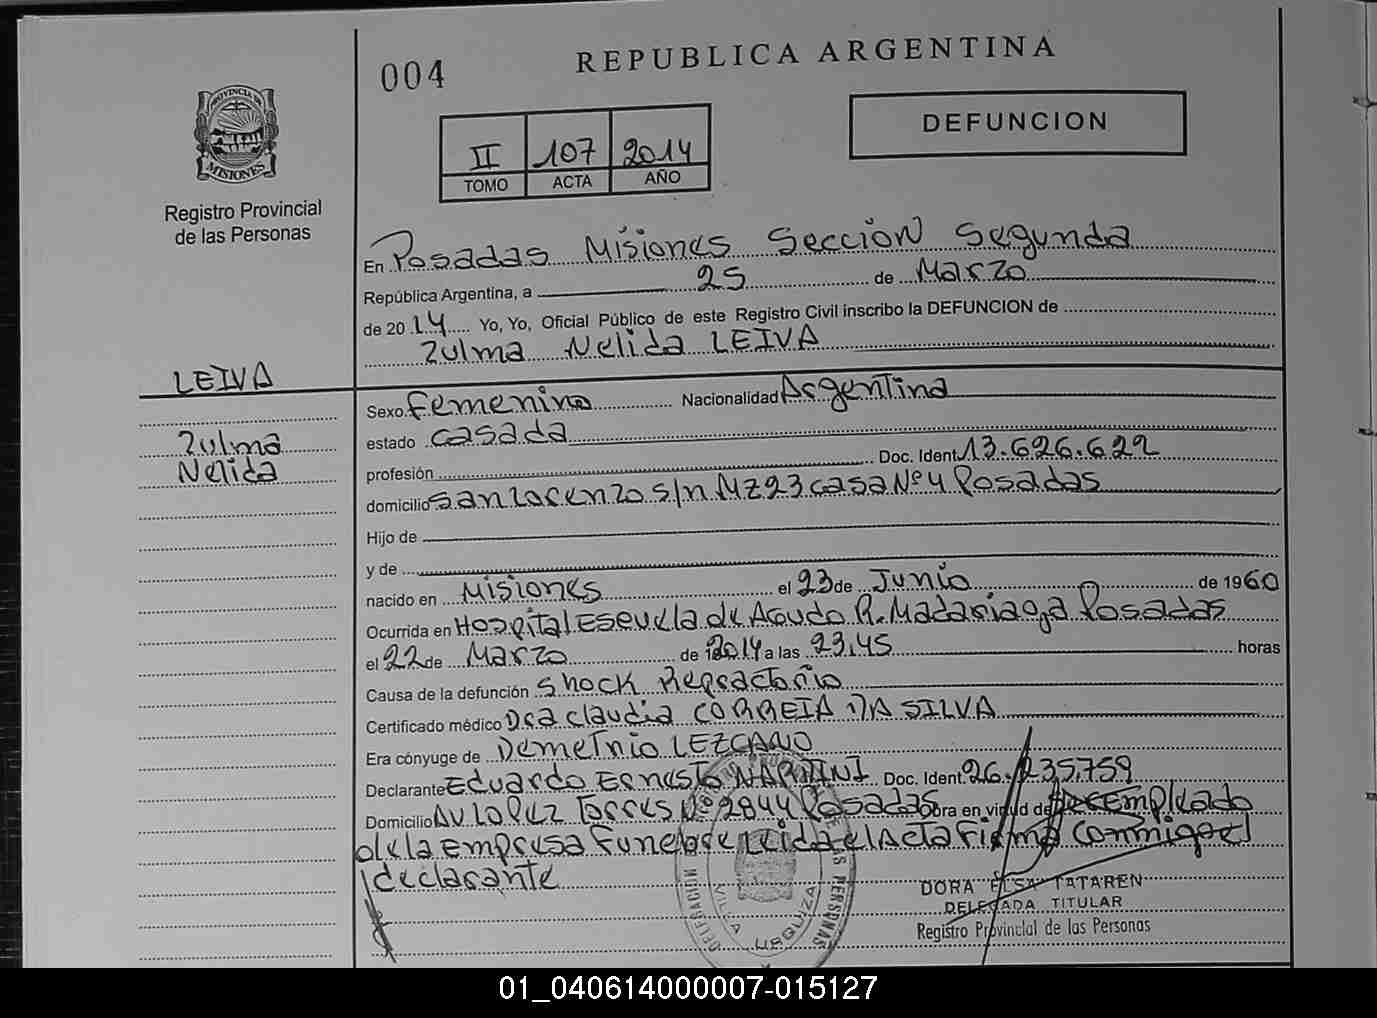 004
REPUBLICA ARGENTINA
DEFUNCION
II 107 2014
TOMO ACTA AÑO
PROVINCIA DE
MISIONES
Registro Provincial
de las Personas
En Posadas Misiones Sección Segunda
República Argentina, a 25 de Marzo
de 2014 Yo, Yo, Oficial Público de este Registro Civil inscribo la DEFUNCION de
Zulma Nelida LEIVA
LEIVA
Zulma
Nelida
Sexo Femenino Nacionalidad Argentina
estado casada
profesión Doc. Ident. 13.626.622
domicilio San Lorenzo s/n Mz 23 casa Nº 4 Posadas
Hijo de
y de
nacido en Misiones el 23 de Junio de 1960
Ocurrida en Hospital Escuela de Agudo R. Madariaga Posadas
el 22 de Marzo de 2014 a las 23,45 horas
Causa de la defunción Shock Refractario
Certificado médico Dra Claudia CORREIA DA SILVA
Era cónyuge de Demetrio LEZCANO
Declarante Eduardo Ernesto NARDINI Doc. Ident. 26.235.759
Domicilio AV Lopez Torres Nº 2844 Posadas Obra en virtud de Ser Empleado
de la Empresa Funebre Leida el Acta Firma Conmigo el
declarante
DELEGACION VILLA URQUIZA
DORA ELSA TATAREN
DELEGADA TITULAR
Registro Provincial de las Personas
01_040614000007-015127